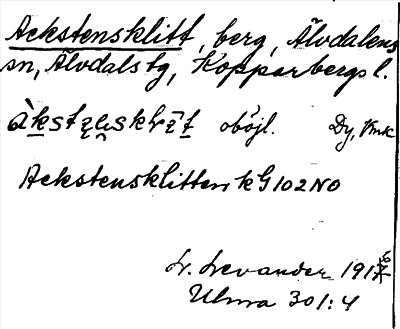 Ackstensklitt, berg, Älvdalens
sn, Älvdals tg, Kopparbergs l.
oböjl. Dy,
Ackstensklitten kG102NO
L. Levander 191
Ulma 301:4